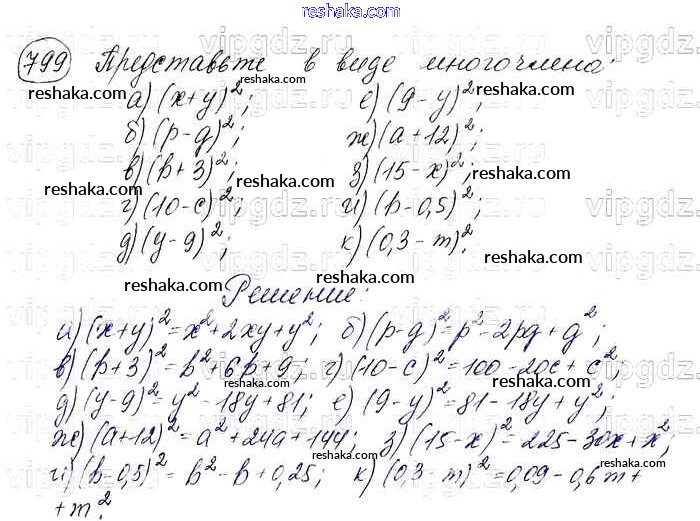 reshaka.com
799 Представьте в виде многочлена:
а) (x+y)²; е) (9-y)²;
б) (p-q)²; ж) (a+12)²;
в) (b+3)²; з) (15-x)²;
г) (10-c)²; и) (b-0,5)²;
д) (y-9)²; к) (0,3-m)².
Решение:
а) (x+y)²=x²+2xy+y²; б) (p-q)²=p²-2pq+q²;
в) (b+3)²=b²+6b+9; г) (10-c)²=100-20c+c²;
д) (y-9)²=y²-18y+81; е) (9-y)²=81-18y+y²;
ж) (a+12)²=a²+24a+144; з) (15-x)²=225-30x+x²;
и) (b-0,5)²=b²-b+0,25; к) (0,3-m)²=0,09-0,6m+
+m².